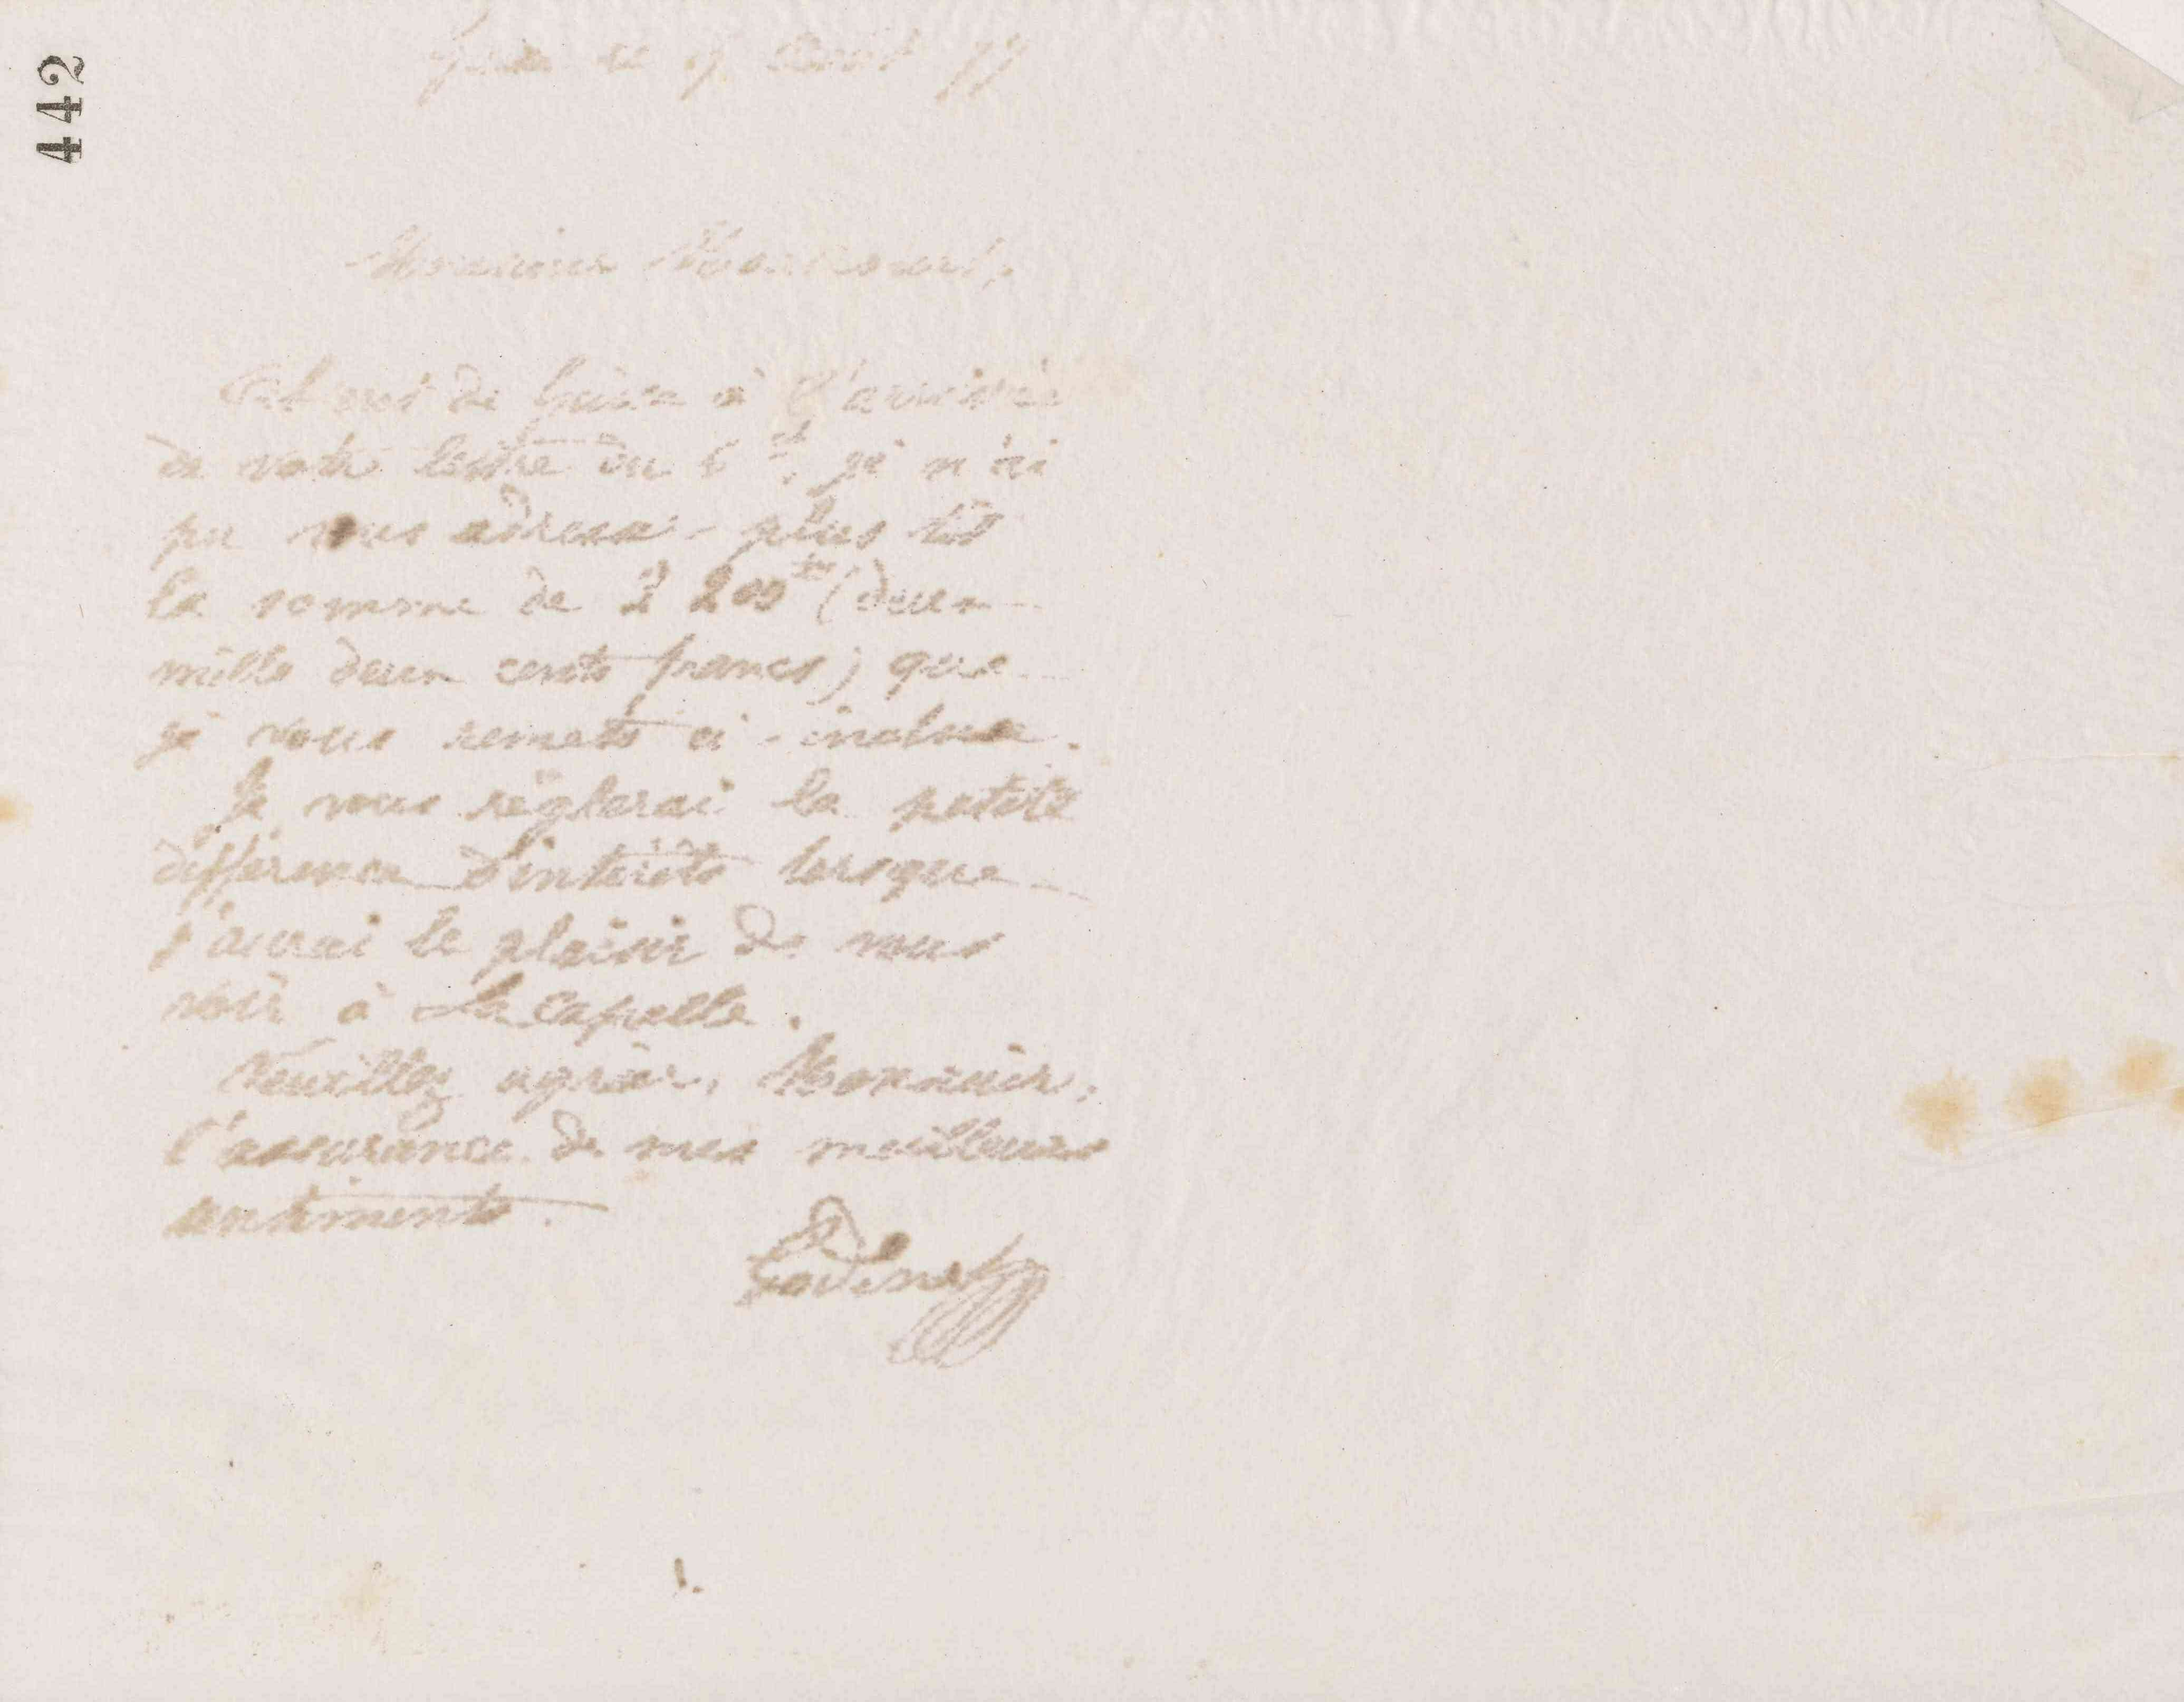 442
Guise le 9 Août 77
Monsieur
Absent de Guise à l'arrivée
de votre lettre du 6 ct, je n'ai
pu vous adresser plus tôt
la somme de 2 200 frs (deux
mille deux cents francs) que
je vous remets ci-incluse.
Je vous réglerai la petite
différence d'intérêts lorsque
j'aurai le plaisir de vous
voir à La Capelle.
Veuillez agréer, Monsieur,
l'assurance de mes meilleurs
sentiments.
Godin